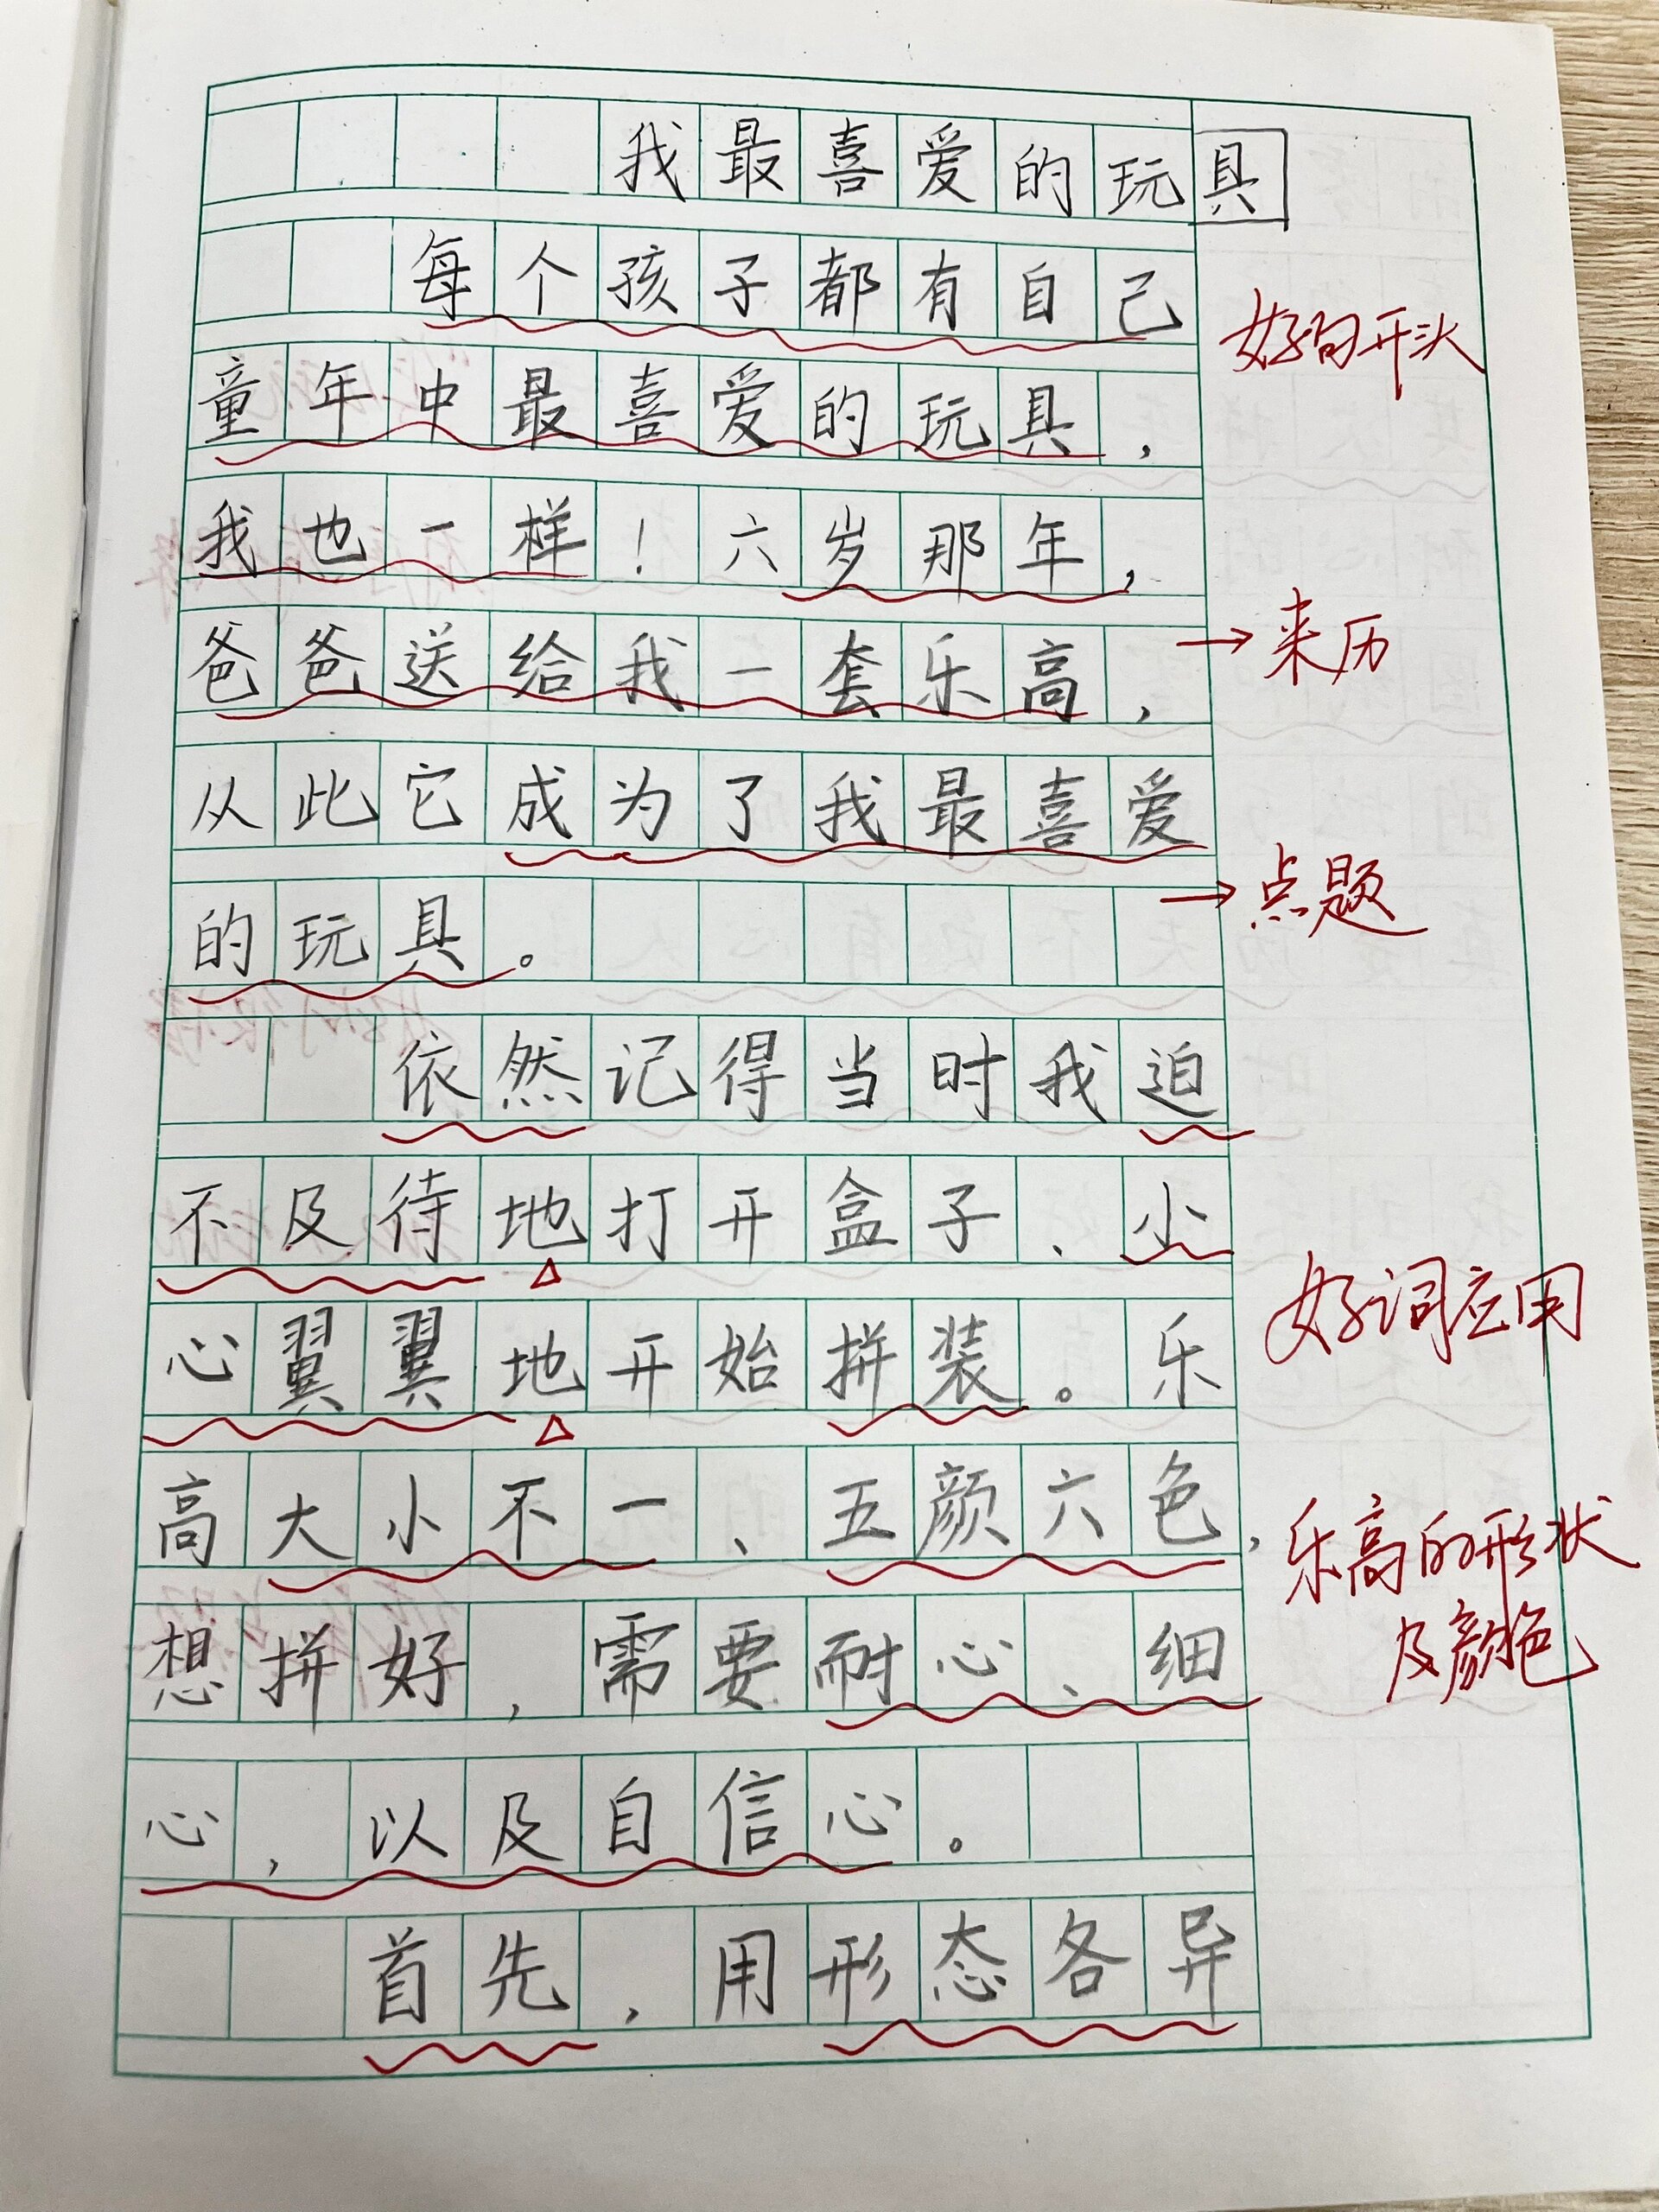 我最喜爱的玩具
每个孩子都有自己
好句开头
童年中最喜爱的玩具，
我也一样！六岁那年，
爸爸送给我一套乐高，
→来历
从此它成为了我最喜爱
→点题
的玩具。
依然记得当时我迫
不及待地打开盒子、小
心翼翼地开始拼装。乐
好词应用
高大小不一、五颜六色，
乐高的形状
及颜色
想拼好，需要耐心、细
心，以及自信心。
首先，用形态各异